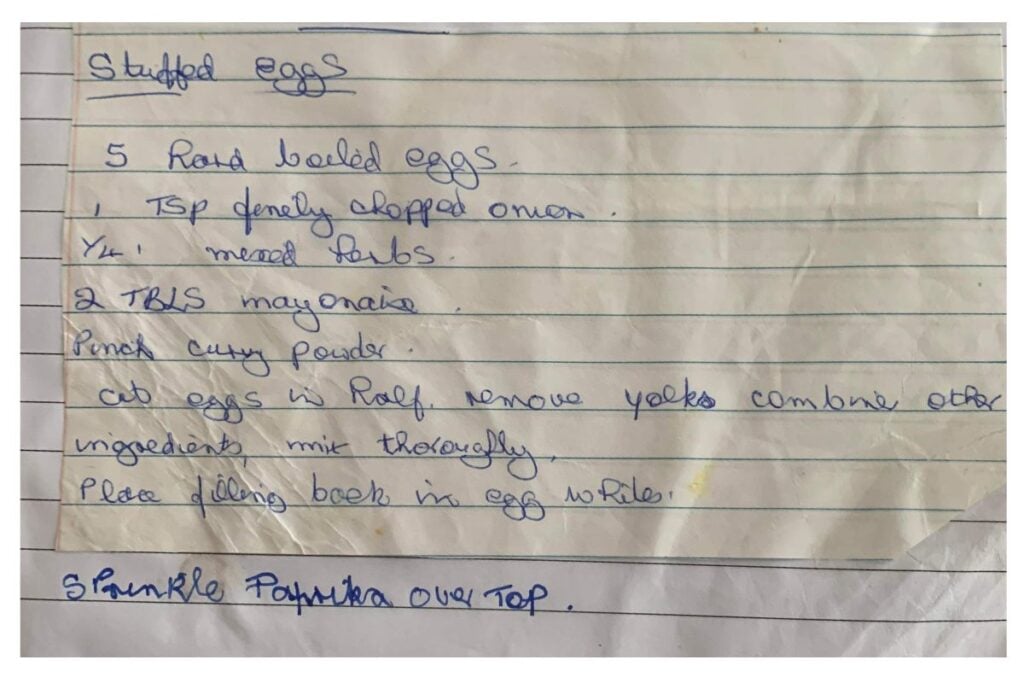 Stuffed eggs
5 Hard boiled eggs.
1 TSP finely chopped onion.
1/4 " mixed herbs.
2 TBLS mayonaise.
Pinch curry powder.
cut eggs in half, remove yolks combine other
ingredients, mix thoroughly,
Place filling back in egg whites.
Sprinkle Paprika over Top.